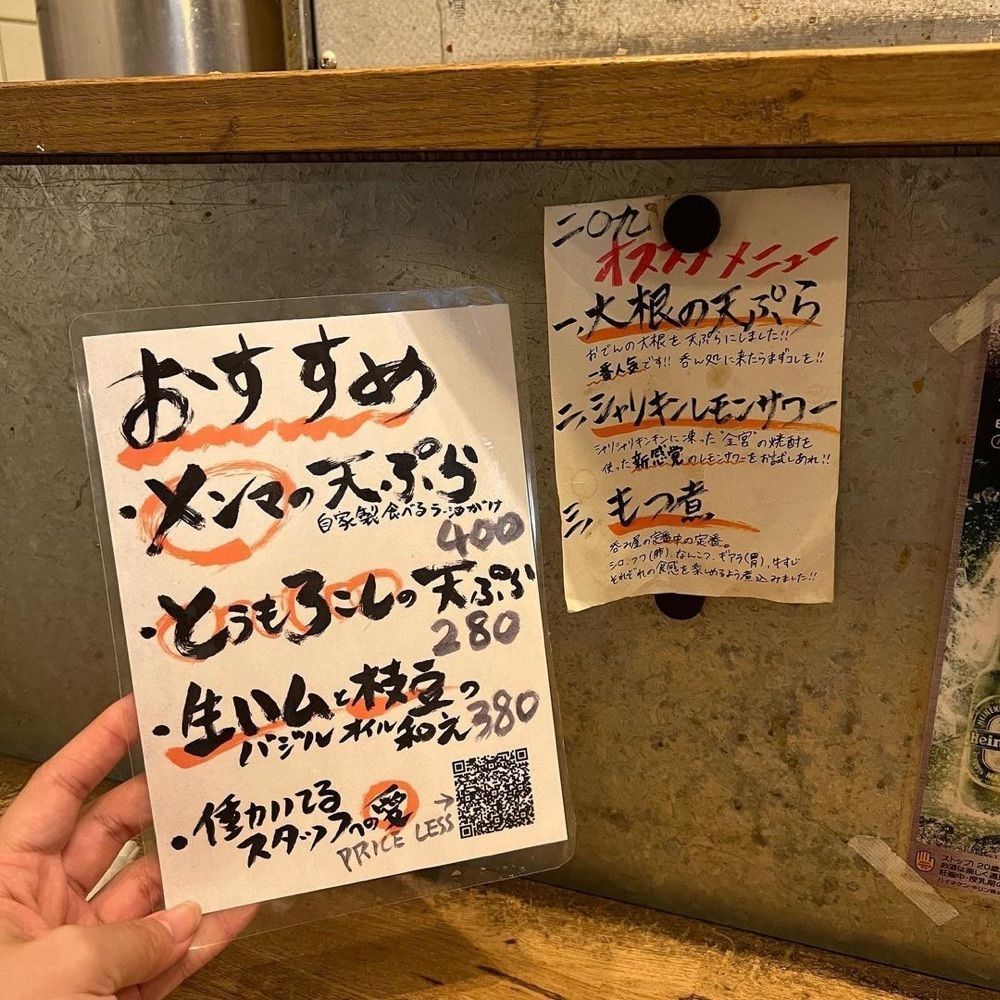 おすすめ
・メンマの天ぷら
自家製食べるラー油がけ
400
・とうもろこしの天ぷら
280
・生ハムと枝豆の
バジルオイル和え 380
・働かいてる
スタッフへの愛 →
PRICE LESS
二〇九
オススメメニュー
一、大根の天ぷら
おでんの大根を天ぷらにしました!!
一番人気です!! 呑ん処に来たらまずコレを!!
二、シャリキンレモンサワー
シャリシャリキンキンに凍った"金宮"の焼酎を
使った新感覚のレモンサワーをお試しあれ!!
三、もつ煮
呑み屋の定番中の定番。
シロ、フワ(肺)、なんこつ、ギアラ(胃)、牛すじ
それぞれの食感を楽しめるよう煮込みました!!
ストップ!20歳
お酒は楽しく適
妊娠中・授乳期
ハイネケン・キリン株